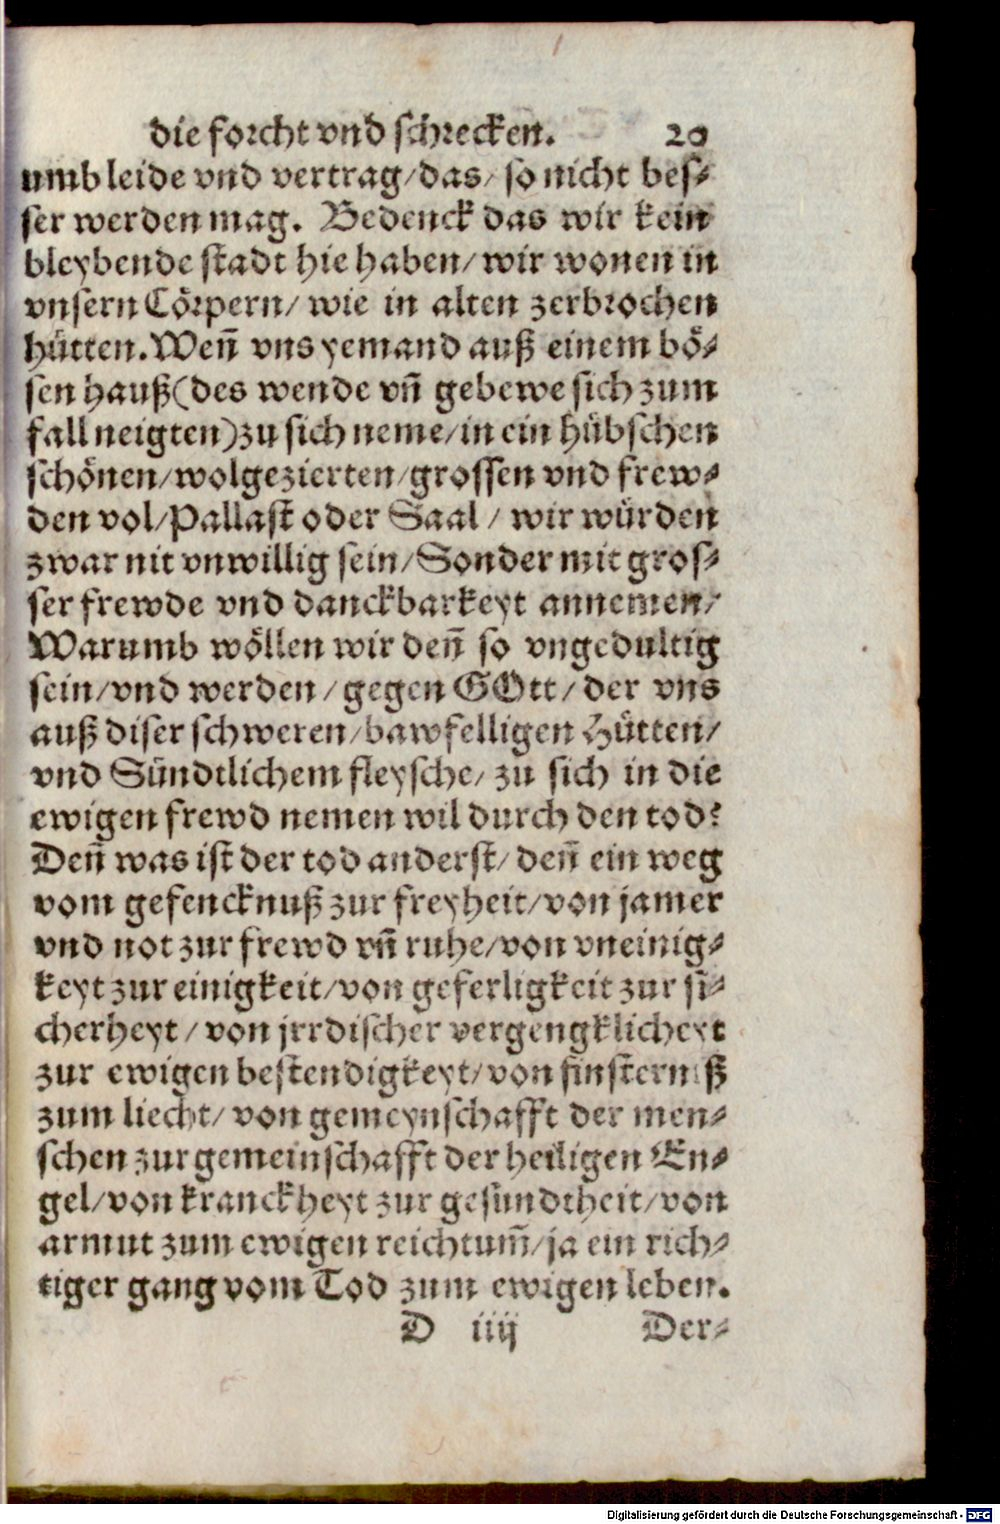 die forcht vnd schrecken. 20
umb leide vnd vertrag/das/ so nicht bes⸗
ser werden mag. Bedenck das wir kein
bleybende stadt hie haben/wir wonen in
vnsern Cörpern/ wie in alten zerbrochen
hütten. Weñ vns yemand auß einem bö⸗
sen hauß(des wende vñ gebewe sich zum
fall neigten)zu sich neme/in ein hübschen
schönen/wolgezierten/grossen vnd frew⸗
den vol/Pallast oder Saal / wir würden
zwar nit vnwillig sein/Sonder mit gros⸗
ser frewde vnd danckbarkeyt annemen/
Warumb wöllen wir deñ so vngedultig
sein/vnd werden /gegen GOtt/ der vns
auß diser schweren/bawfelligen Hütten/
vnd Sündtlichem fleysche/ zu sich in die
ewigen frewd nemen wil durch den tod?
Deñ was ist der tod anderst/ deñ ein weg
vom gefencknuß zur freyheit/von jamer
vnd not zur frewd vñ ruhe/von vneinig⸗
keyt zur einigkeit/von geferligkeit zur si⸗
cherheyt / von jrrdischer vergengklicheyt
zur ewigen bestendigkeyt/von finsterniß
zum liecht/ von gemeynschafft der men⸗
schen zur gemeinschafft der heiligen En⸗
gel/von kranckheyt zur gesundtheit/von
armut zum ewigen reichtum̃/ja ein rich⸗
tiger gang vom Tod zum ewigen leben.
D iiij Der⸗
Digitalisierung gefördert durch die Deutsche Forschungsgemeinschaft - DFG